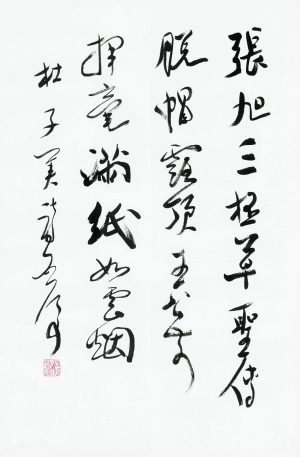 張旭三杯草聖傳
脫帽露頂王公前
揮毫滿紙如雲烟
杜子美詩